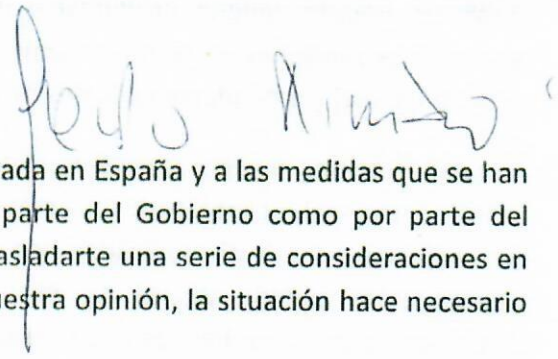 ada en España y a las medidas que se han
parte del Gobierno como por parte del
asladarte una serie de consideraciones en
uestra opinión, la situación hace necesario